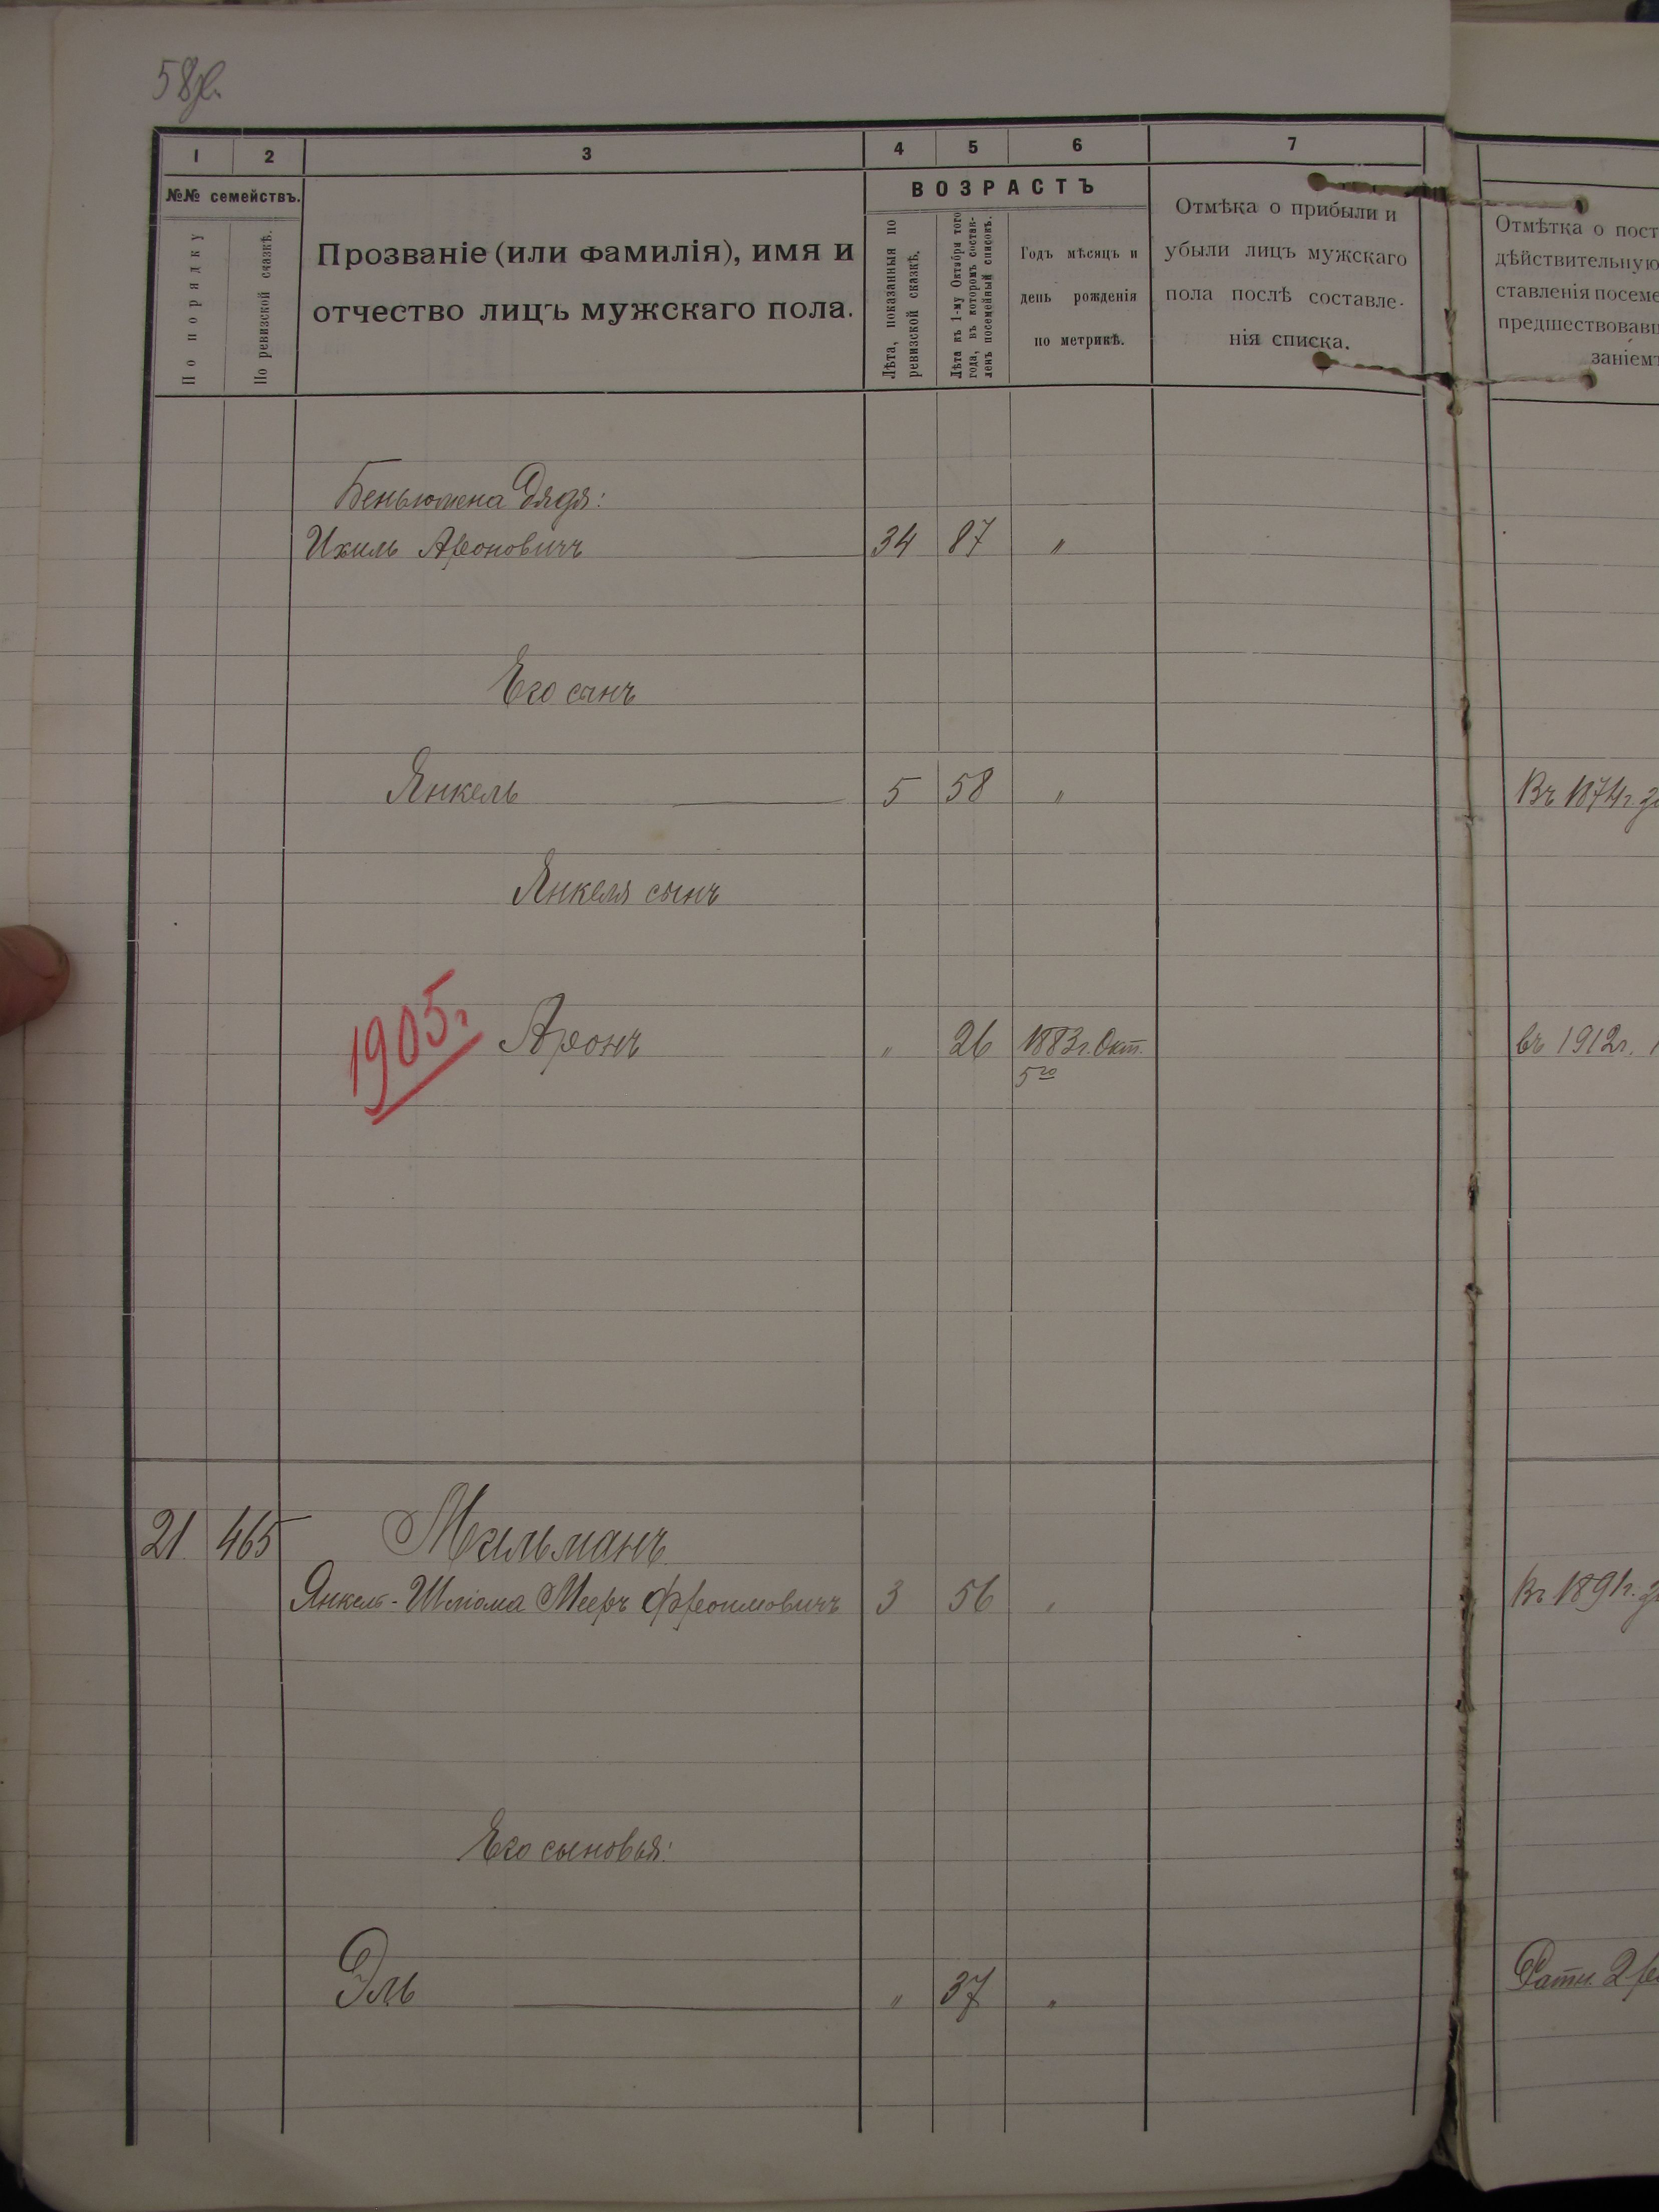 58
1 2 3 4 5 6 7
№№ семействъ.
По порядку
По ревизской сказкѣ.
Прозваніе (или фамилія), имя и
отчество лицъ мужскаго пола.
ВОЗРАСТЪ
Лѣта, показанныя по
ревизской сказкѣ.
Лѣта къ 1-му Октября того
года, въ которомъ состав-
ленъ посемейный списокъ.
Годъ мѣсяцъ и
день рожденія
по метрикѣ.
Отмѣка о прибыли и
убыли лицъ мужскаго
пола послѣ составле-
нія списка.
Отмѣтка о пост
дѣйствительную
ставленія посеме
предшествовавш
заніемъ
Беньюмена дядя:
Ихиль Ароновичъ 34 87 "
Его сынъ
Янкель 5 58 "
Въ 1874г.
Янкеля сынъ
1905г Аронъ " 26 1883г. Окт.
5го
въ 1912г.
21 465 Мильманъ
Янкель-Шлiома Мееръ Фроимовичъ 3 56 "
Въ 1891г.
Его сыновья:
Эль " 37 "
Ратн. 2